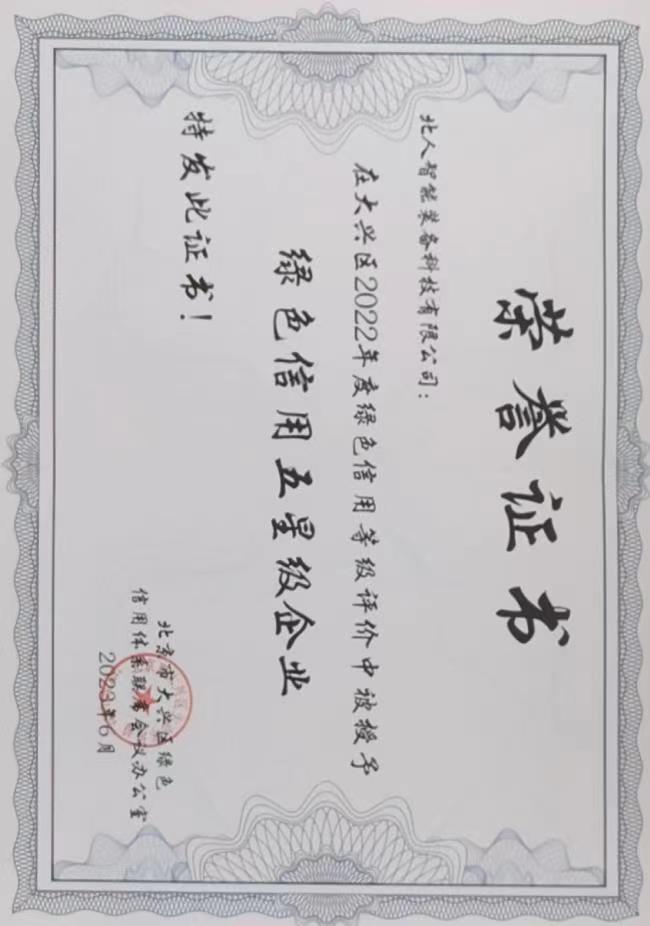 荣誉证书
北人智能装备科技有限公司：
在大兴区2022年度绿色信用等级评价中被授予
绿色信用五星级企业
特发此证书！
北京市大兴区绿色
信用体系联席会议办公室
2023年6月